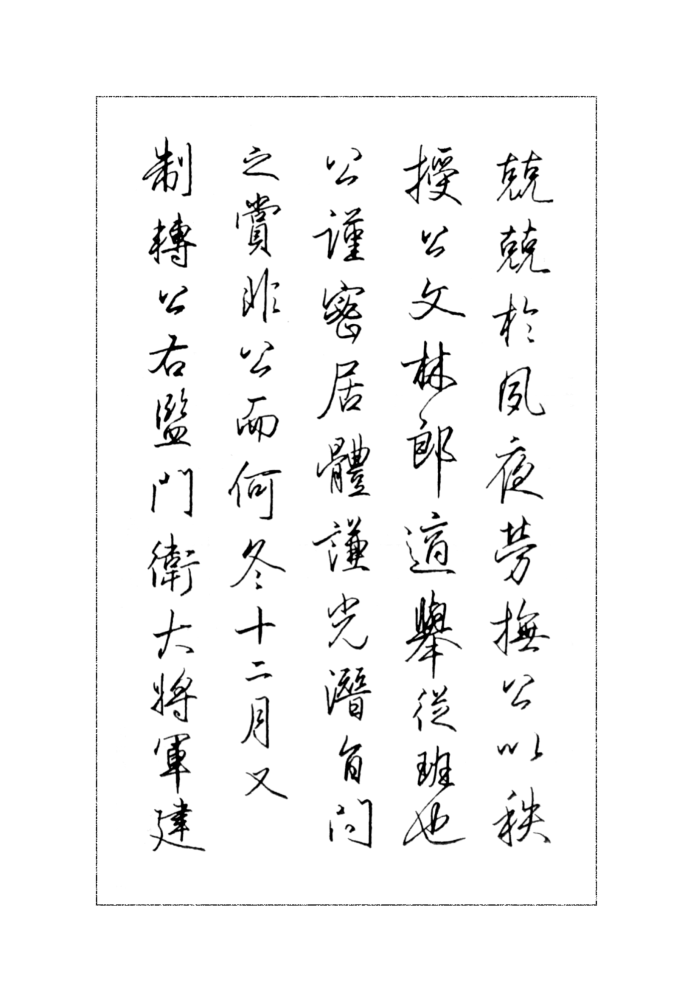 兢兢於夙夜劳撫公以秩
授公文林郎適舉從班也
公謹密居體謙光潛自問
之賞非公而何冬十二月又
制轉公右監門衛大將軍建